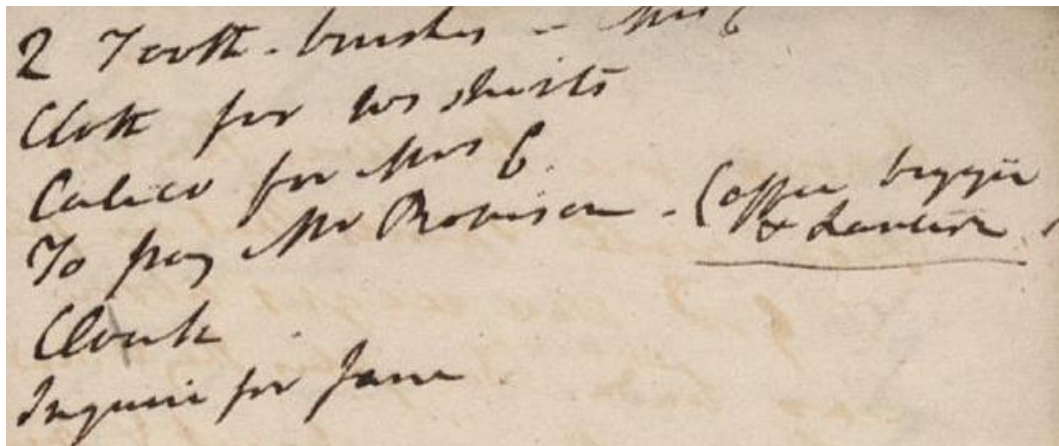 2 Tooth-brushes - Mrs C
Cloth for ws shirts
Calico for Mrs C.
To pay Mr Robison - (Coffee biggin
& Lantern.
Cloak
Inquire for Jane